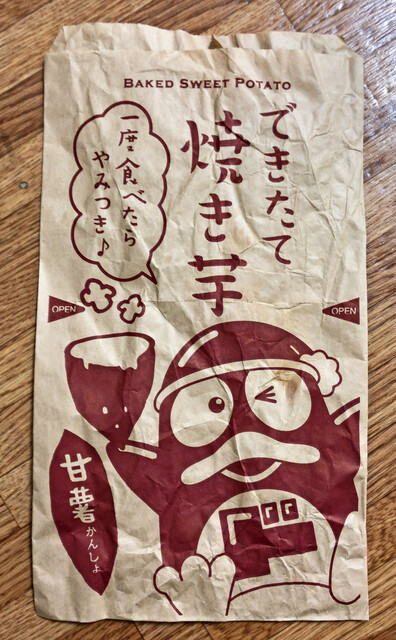 BAKED SWEET POTATO
できたて
焼き芋
一度食べたら
やみつき♪
OPEN
OPEN
甘薯
かんしょ